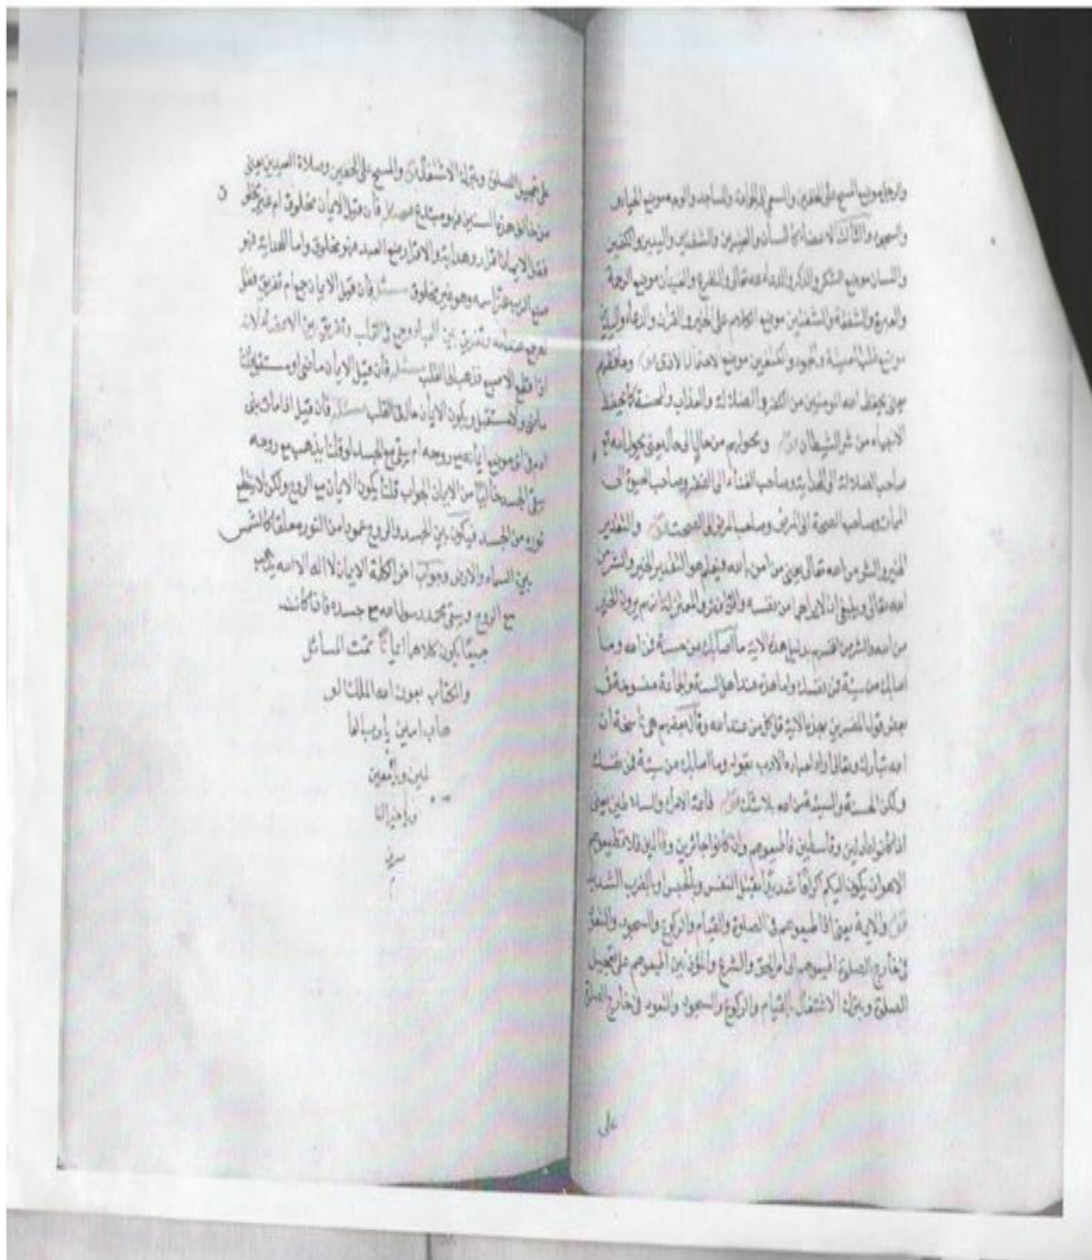 والرجل موضع المسح على الخفين والسعي الى الجماعة والمساجد والوجه موضع الحياء
والسجود والثالث الاعضاء كاللسان والعينين والشفتين واليدين والكفين
واللسان موضع الشكر والذكر والدعاء الله تعالى والتضرع والعينان موضع الرحمة
والعبرة والشفة والشفتين موضع الكلام على الخير والقران والدعاء
موضع طلب والكفين موضع
يعني يحفظ الله المومنين من الكفر والضلالة والعذاب كما يحفظ
الانبياء من شر الشيطان ويحولهم من حال الى حال يعني يحول الله تع
صاحب الضلالة الى الهداية وصاحب الغناء الى الفقر وصاحب الحيوة الى
الممات وصاحب الصحة الى المرض وصاحب المرض الى الصحت والتقدير
الخير والشر من الله تعالى يعني من امن بالله ويعلم هو التقدير الخير والشر من
الله تعالى وينبغي ان لا يراهما من نفسه والمعتزلة انهم يرون الخير
من الله والشر من انفسهم بدليل هذه الاية ما اصابك من حسنة فمن الله وما
اصابك من سيئة فمن نفسك واما هذه عند اهل السنة والجماعة منسوخة في
بعض قول المفسرين بهذه الاية قل كل من عند الله وقال بعضهم هي ناسخة ان
الله تبارك وتعالى اراد لعباده الادب بقوله وما اصابك من سيئة فمن نفسك
ولكن الحسنة والسيئة من الله بلا شك طاعة الامراء والسلاطين يعني
اذا كانوا عادلين وقاسطين فاطيعوهم وان كانوا جائرين وظالمين فلا تطيعوهم
الا ان يكون اليكم كراها شديدا بقتل النفس وبالحبس او بالضرب الشديد
والايمة يعني اطيعوهم في الصلوة والقيام والركوع والسجود والقعود
في خارج الصلوة اطيعوهم الى امر الحق والشرع والموذنين اطيعوهم على تعجيل
الصلوة وبترك الاشتغال القيام والركوع والسجود والقعود في خارج الصلوة
على
على تعجيل الصلوة وبترك الاشتغال والمسح على الخفين وصلاة العيدين يعني
من خالف هذه السنين فهو مبتدع فان قيل الايمان مخلوق ام غير مخلوق
فقل الايمان اقرار وهداية والاقرار صنع العبد فهو مخلوق واما الهداية فهو
صنع الرب عز اسمه وهو غير مخلوق مسئلة فان قيل الايمان جمع ام تفريق فقل
جمع في القلب وتفريق بين الاعضاء
اذا قطع الاصبع فذهب الى القلب مسئلة فان قيل الايمان ماضي او مستقبل قلنا
ماضي ولا مستقبل ويكون الايمان القلب مسئلة فان قيل اذا مات بني
ادم في اي موضع ايمانه مع روحه ام يبقى مع الجسد لو قلنا يذهب مع روحه
يبقى الجسد خاليا من الايمان الجواب قلنا يكون الايمان مع الروح ولكن لا يقطع
نوره من الجسد فيكون بين الجسد والروح عمود من النور معلقا كالشمس
بين السماء والارض وجواب اخر كلمة الايمان لا اله الا الله يذهب
مع الروح ويبقى محمد رسول الله مع جسده فاذا كانت
جميعا يكون كلاهما ايمانا تمت المسائل
والكتاب بعون الله الملك الو
هاب امين يا رب العا
لمين
ويا خير النا
صرين
م